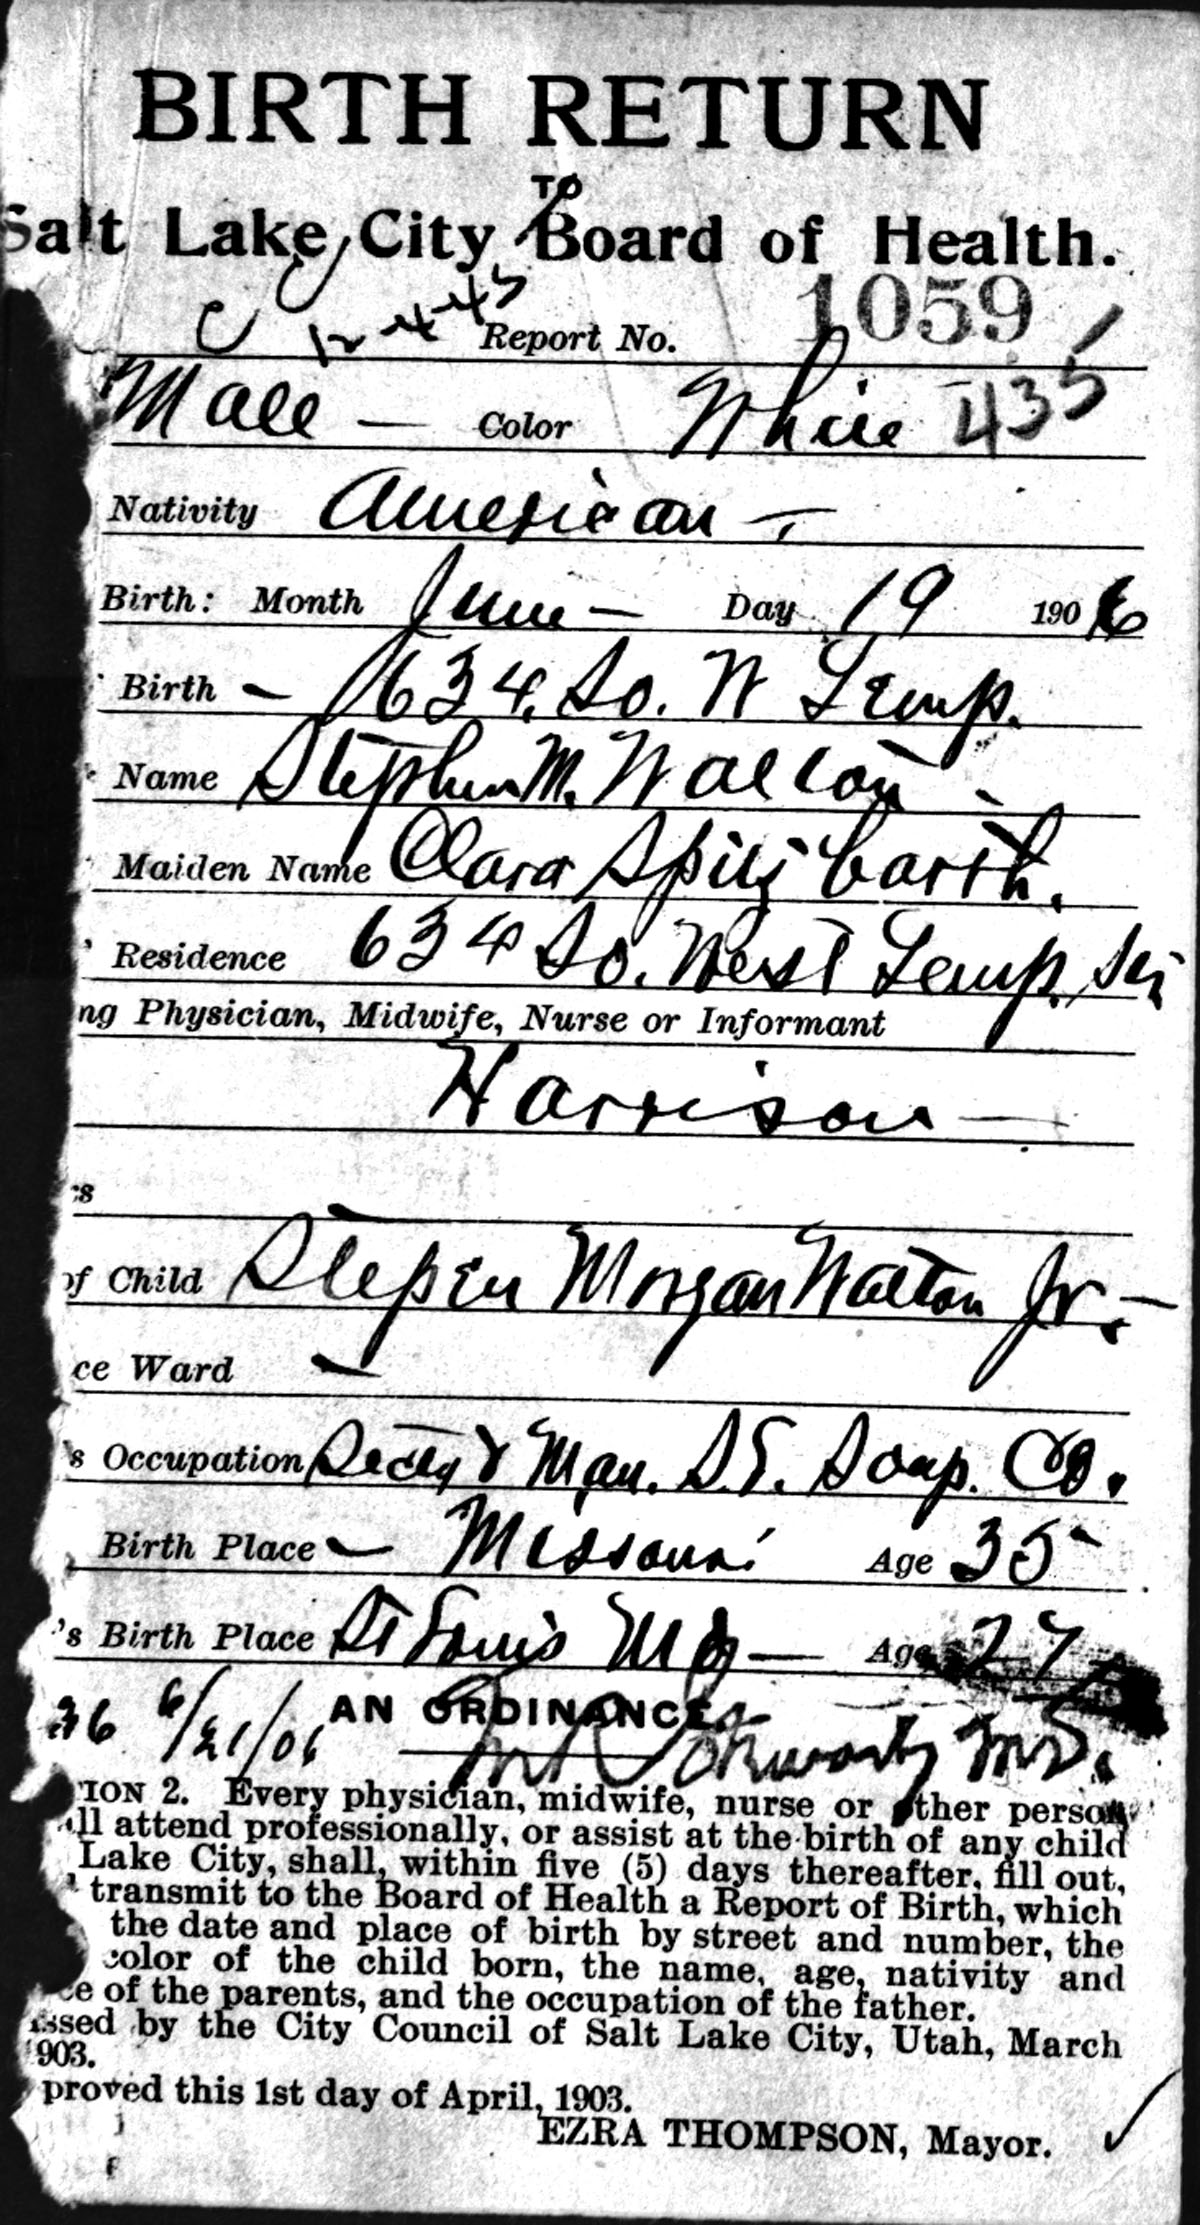 BIRTH RETURN
TO
Salt Lake City Board of Health.
C 12-4-45 Report No. 1059
Male — Color White 435
Nativity American —
Birth: Month June — Day 19 1906
Birth — 634 So. W Temp.
Name Stephen M. Walton -
Maiden Name Clara
Residence 634 So. West Temp.
ng Physician, Midwife, Nurse or Informant
Harrison —
rs
of Child Stepen Morgan Walton Jr. —
ce Ward —
's Occupation Secty & Man. Soap. Co.
Birth Place — Missouri Age 35
's Birth Place St Louis Mo — Age 27
36 6/21/06 AN ORDINANCE.
M.D.
TION 2. Every physician, midwife, nurse or other person
all attend professionally, or assist at the birth of any child
Lake City, shall, within five (5) days thereafter, fill out,
transmit to the Board of Health a Report of Birth, which
the date and place of birth by street and number, the
color of the child born, the name, age, nativity and
ce of the parents, and the occupation of the father.
assed by the City Council of Salt Lake City, Utah, March
1903.
proved this 1st day of April, 1903.
EZRA THOMPSON, Mayor.